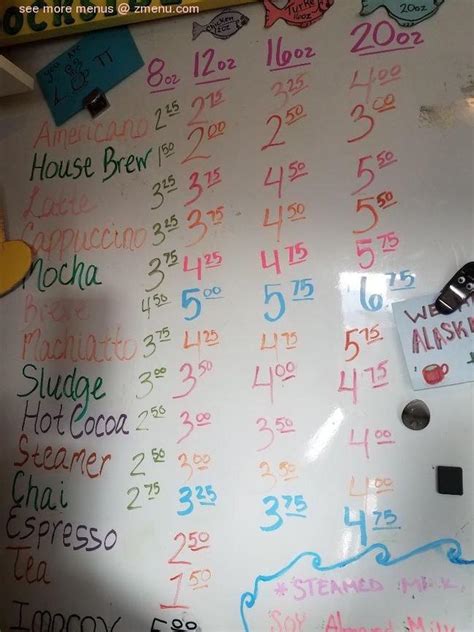 see more menus @ zmenu.com
Chicken 12oz
Turke 16oz
20oz
8oz 12oz 16oz 20oz
Americano 2 25 2 75 3 25 4 00
House Brew 1 50 2 00 2 50 3 00
Latte 3 25 3 75 4 50 5 50
Cappuccino 3 25 3 75 4 50 5 50
Mocha 3 75 4 25 4 75 5 75
Breve 4 50 5 00 5 75 6 75
Machiatto 3 75 4 25 4 75 5 75
Sludge 3 00 3 50 4 00 4 75
Hot Cocoa 2 50 3 00 3 50 4 00
Steamer 2 50 3 00 3 50 4 00
Chai 2 75 3 25 3 75 4 75
Espresso 2 50
Tea 1 50
Improv 5 00
WE
ALASKA
*STEAMED MILK
SOY Almond Milk